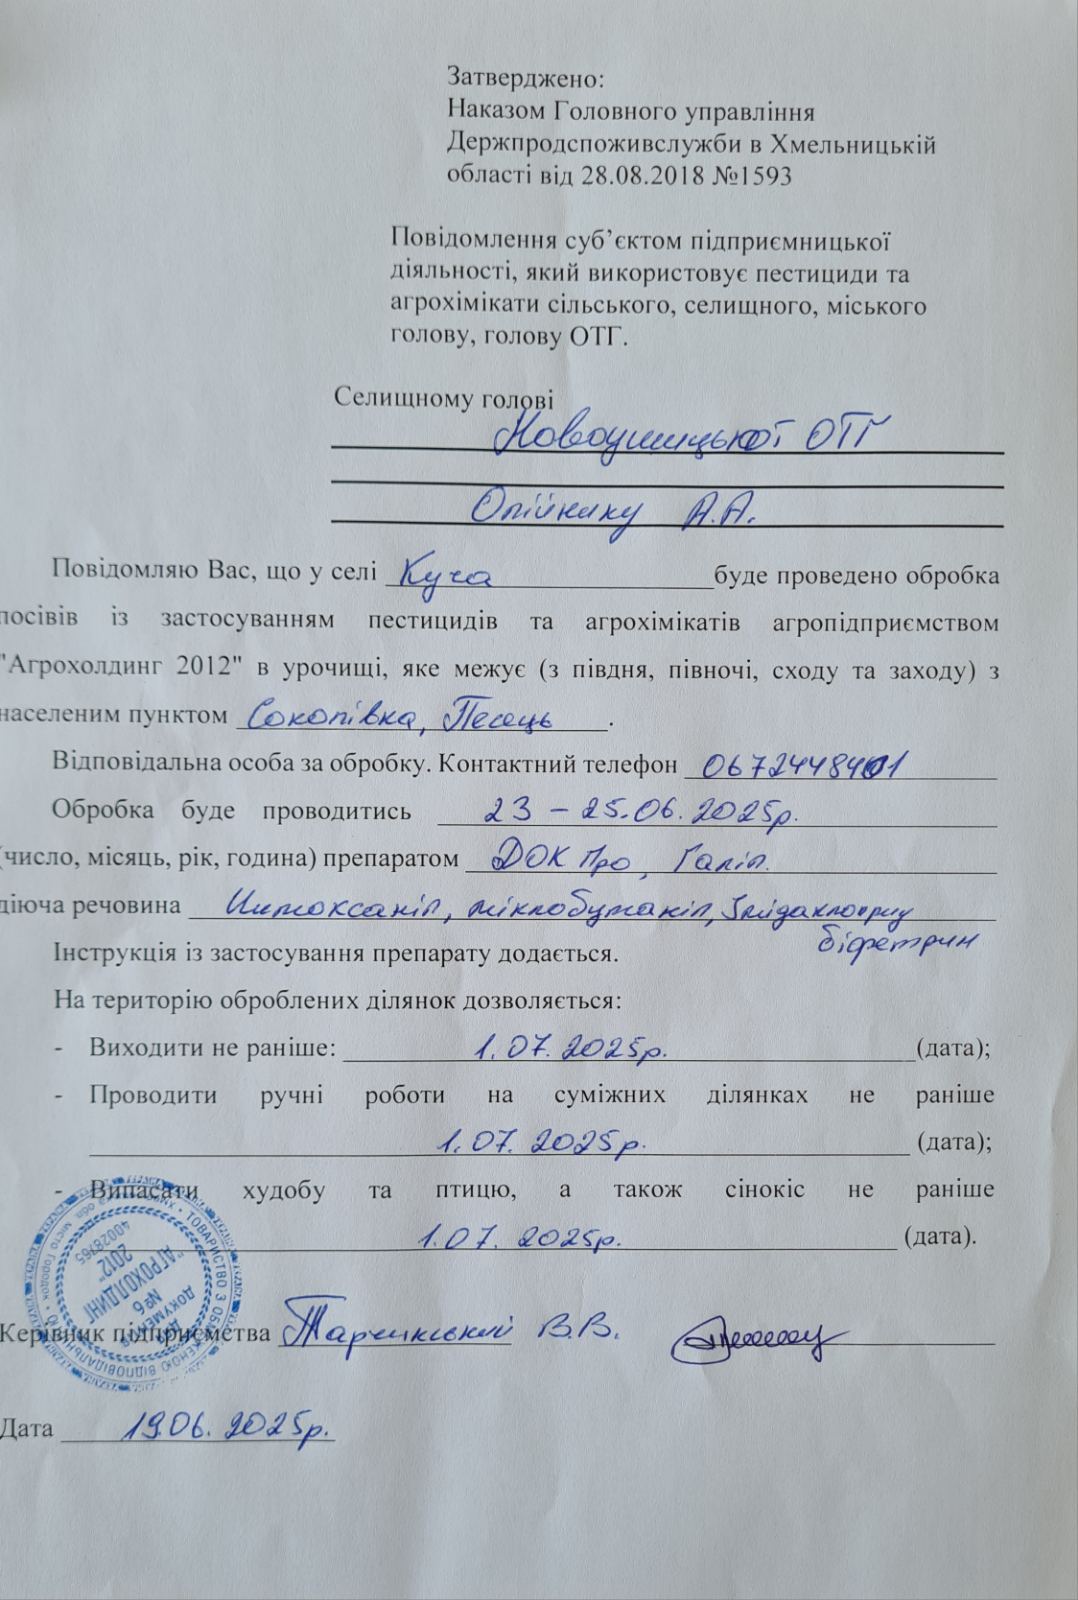 Затверджено:
Наказом Головного управління
Держпродспоживслужби в Хмельницькій
області від 28.08.2018 №1593
Повідомлення суб’єктом підприємницької
діяльності, який використовує пестициди та
агрохімікати сільського, селищного, міського
голову, голову ОТГ.
Селищному голові
Новоушицької ОТГ
Олійнику А.А.
Повідомляю Вас, що у селі Куча буде проведено обробка
посівів із застосуванням пестицидів та агрохімікатів агропідприємством
"Агрохолдинг 2012" в урочищі, яке межує (з півдня, півночі, сходу та заходу) з
населеним пунктом Соколівка, Песець.
Відповідальна особа за обробку. Контактний телефон 0672448401
Обробка буде проводитись 23 – 25.06.2025р.
(число, місяць, рік, година) препаратом ДОК Про, Галіл.
діюча речовина Цимоксаніл, міклобутаніл, Імідаклоприу
біфетрин
Інструкція із застосування препарату додається.
На територію оброблених ділянок дозволяється:
- Виходити не раніше: 1.07.2025р. (дата);
- Проводити ручні роботи на суміжних ділянках не раніше
1.07.2025р. (дата);
- Випасати худобу та птицю, а також сінокіс не раніше
1.07.2025р. (дата).
ТОВАРИСТВО З ОБМЕЖЕНОЮ ВІДПОВІДАЛЬНІСТЮ
місто Городок
"АГРОХОЛДИНГ
2012"
40028765
ДЛЯ
ДОКУМЕНТІВ
№6
Керівник підприємства В.В.
Дата 19.06.2025р.